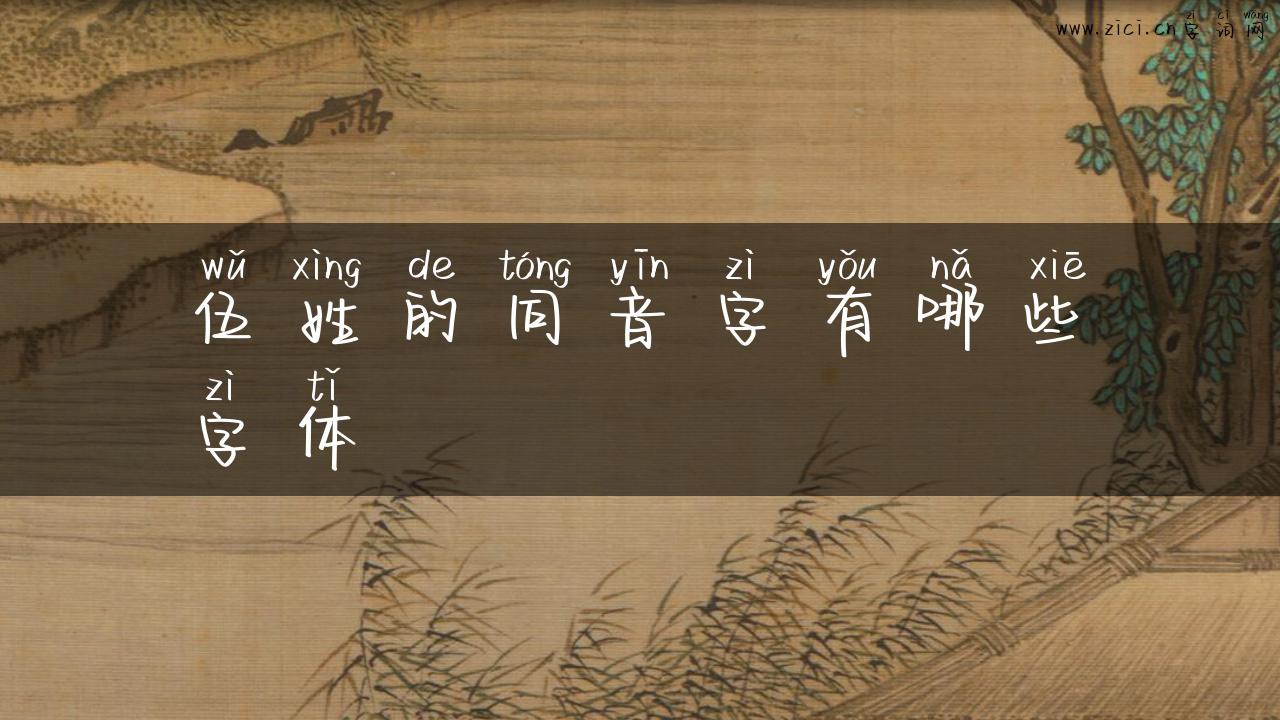 zì cí wǎng
www.zici.cn字词网
wǔ xìng de tóng yīn zì yǒu nǎ xiē
伍姓的同音字有哪些
zì tǐ
字体